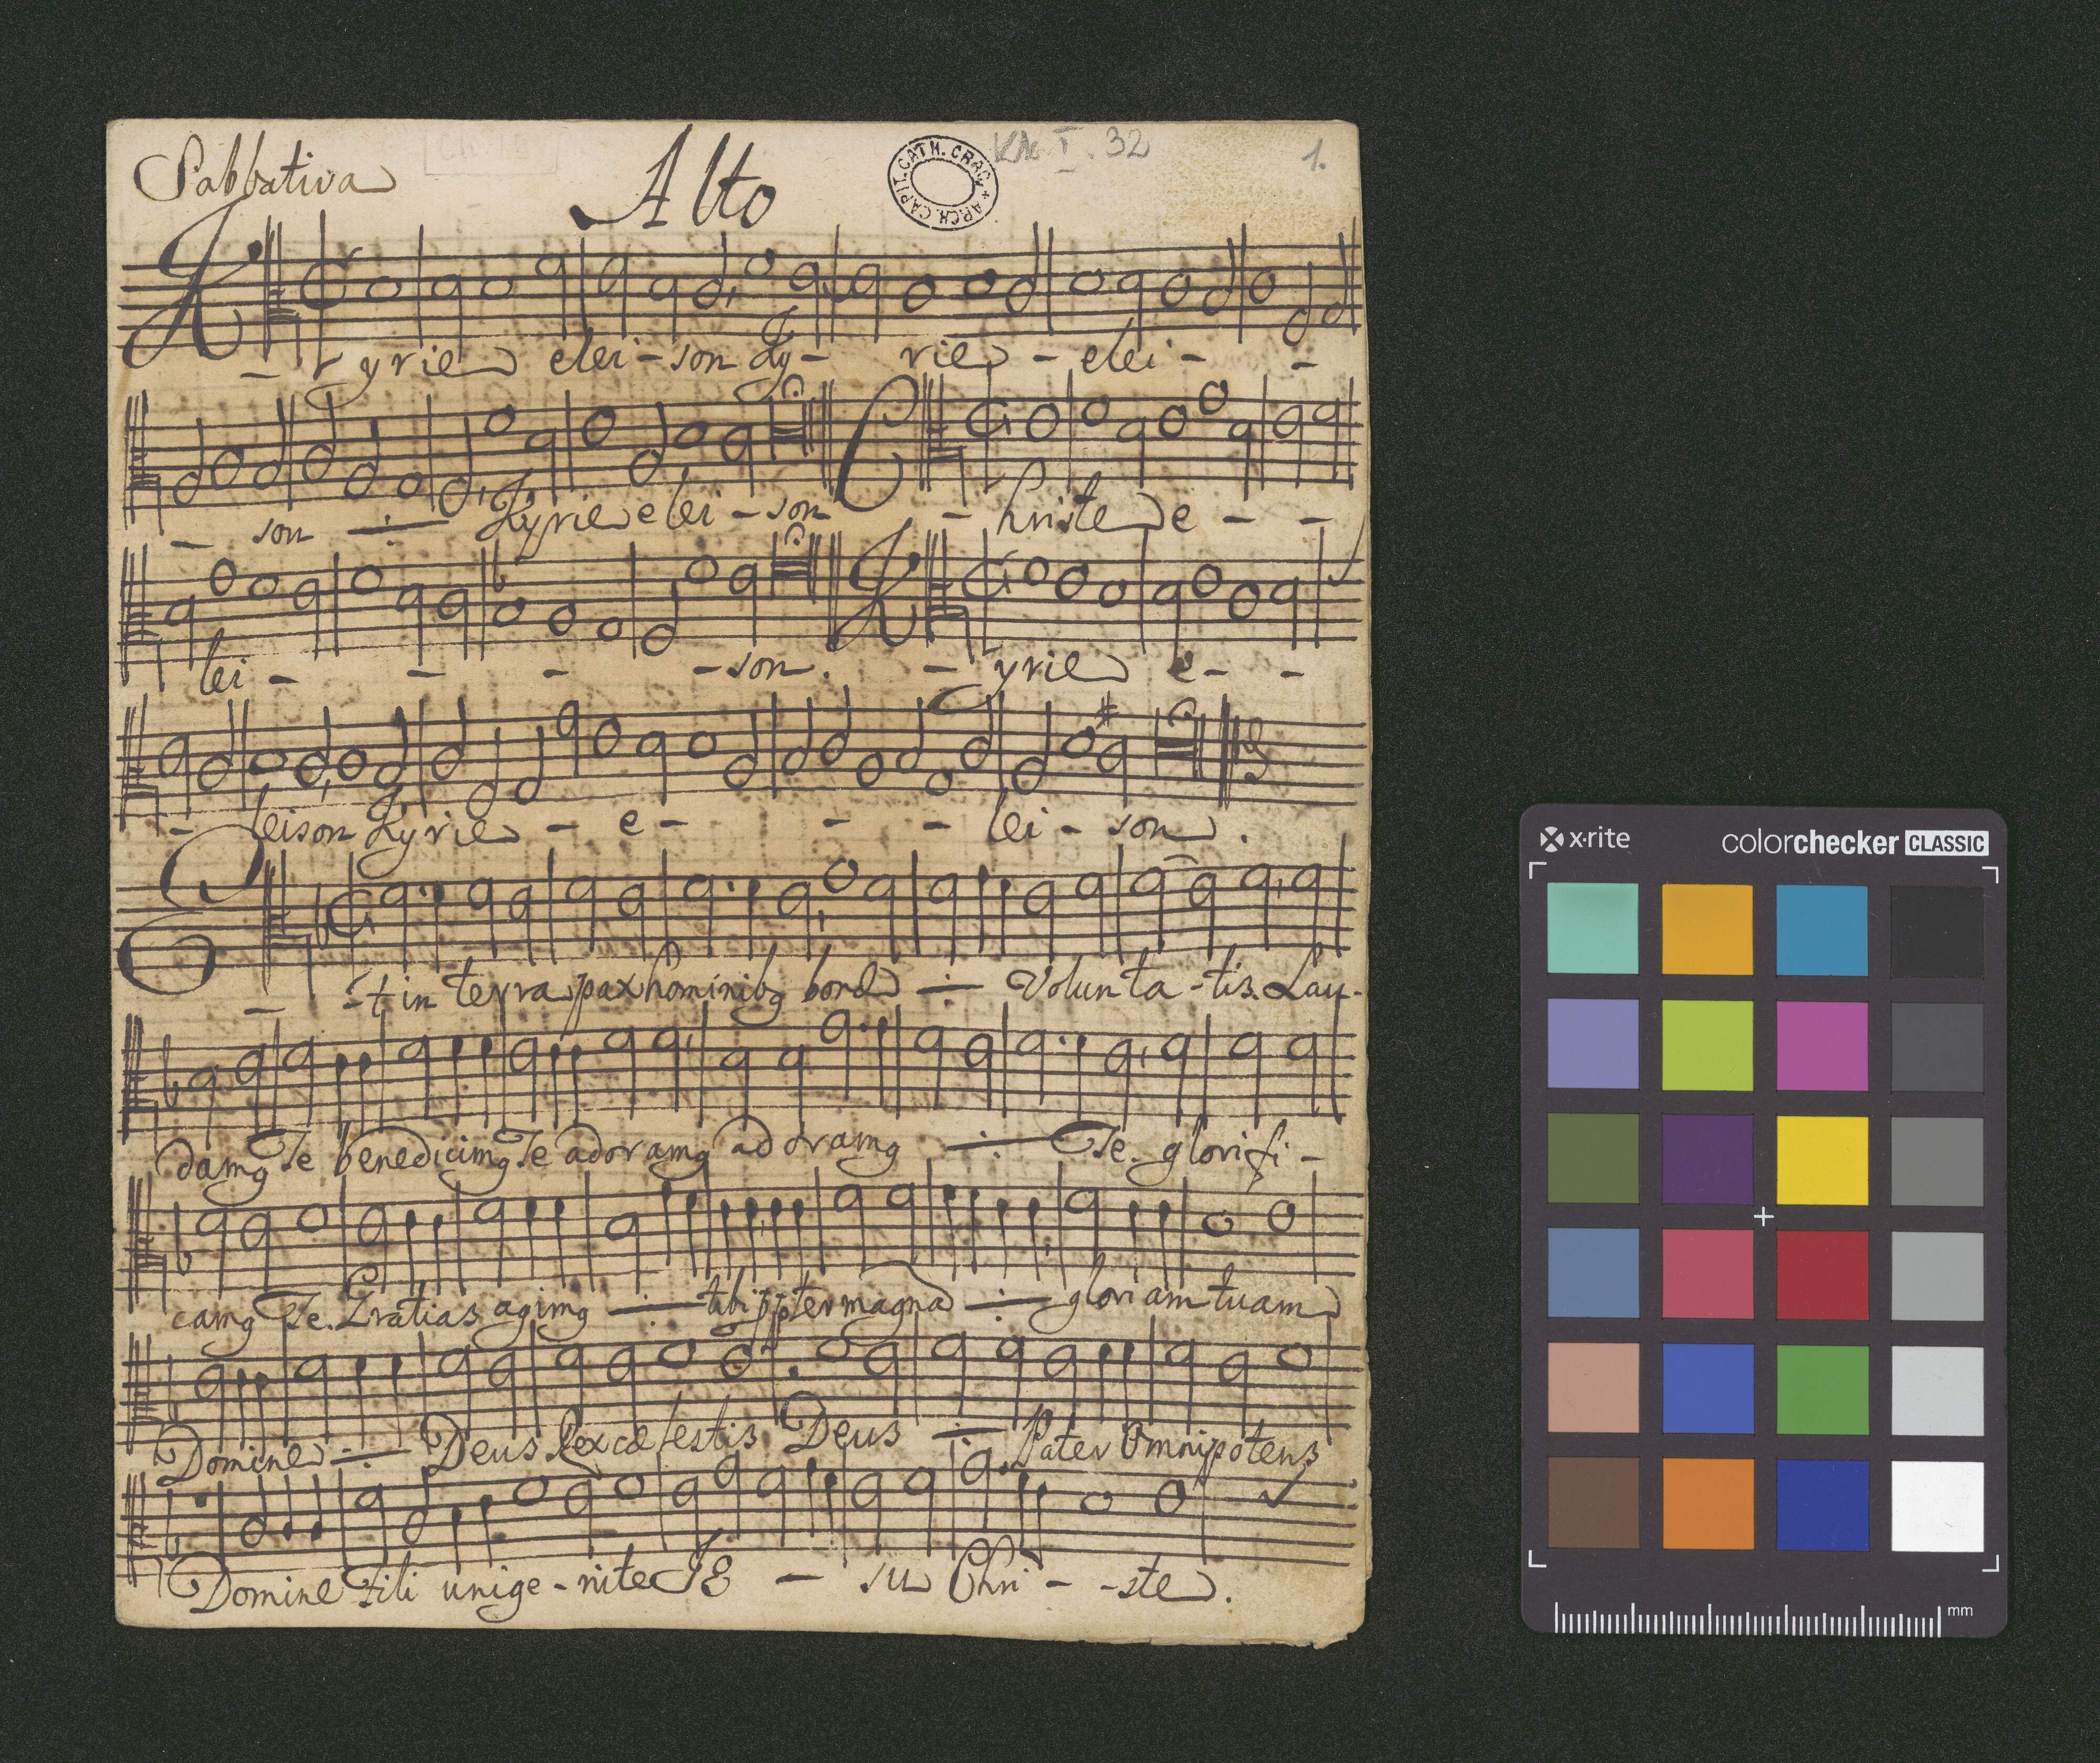 Sabbativa
Alto
ARCH. CAPIT. CATH. CRAC.
KK. I. 32
1.
Kyrie elei - son Ky - rie - elei - -
- son -÷- Kyrie elei - son Christe e - -
lei - - - - son. Kyrie e - -
- leison Kyrie - e - - - lei - son.
Et in terra pax hominibg bonæ -÷- Volunta - tis. Lau-
damg Te benedicimg Te adoramg adoramg -÷- Te. glorifi -
camg Te. Gratias agimg -÷- tibi ppter magnā -÷- gloriam tuam
Domine -÷- Deus Rex cœlestis Deus -÷- Pater Omnipotens
Domine Fili unige - nite JE - su Chri - - ste.
x·rite
colorchecker CLASSIC
mm